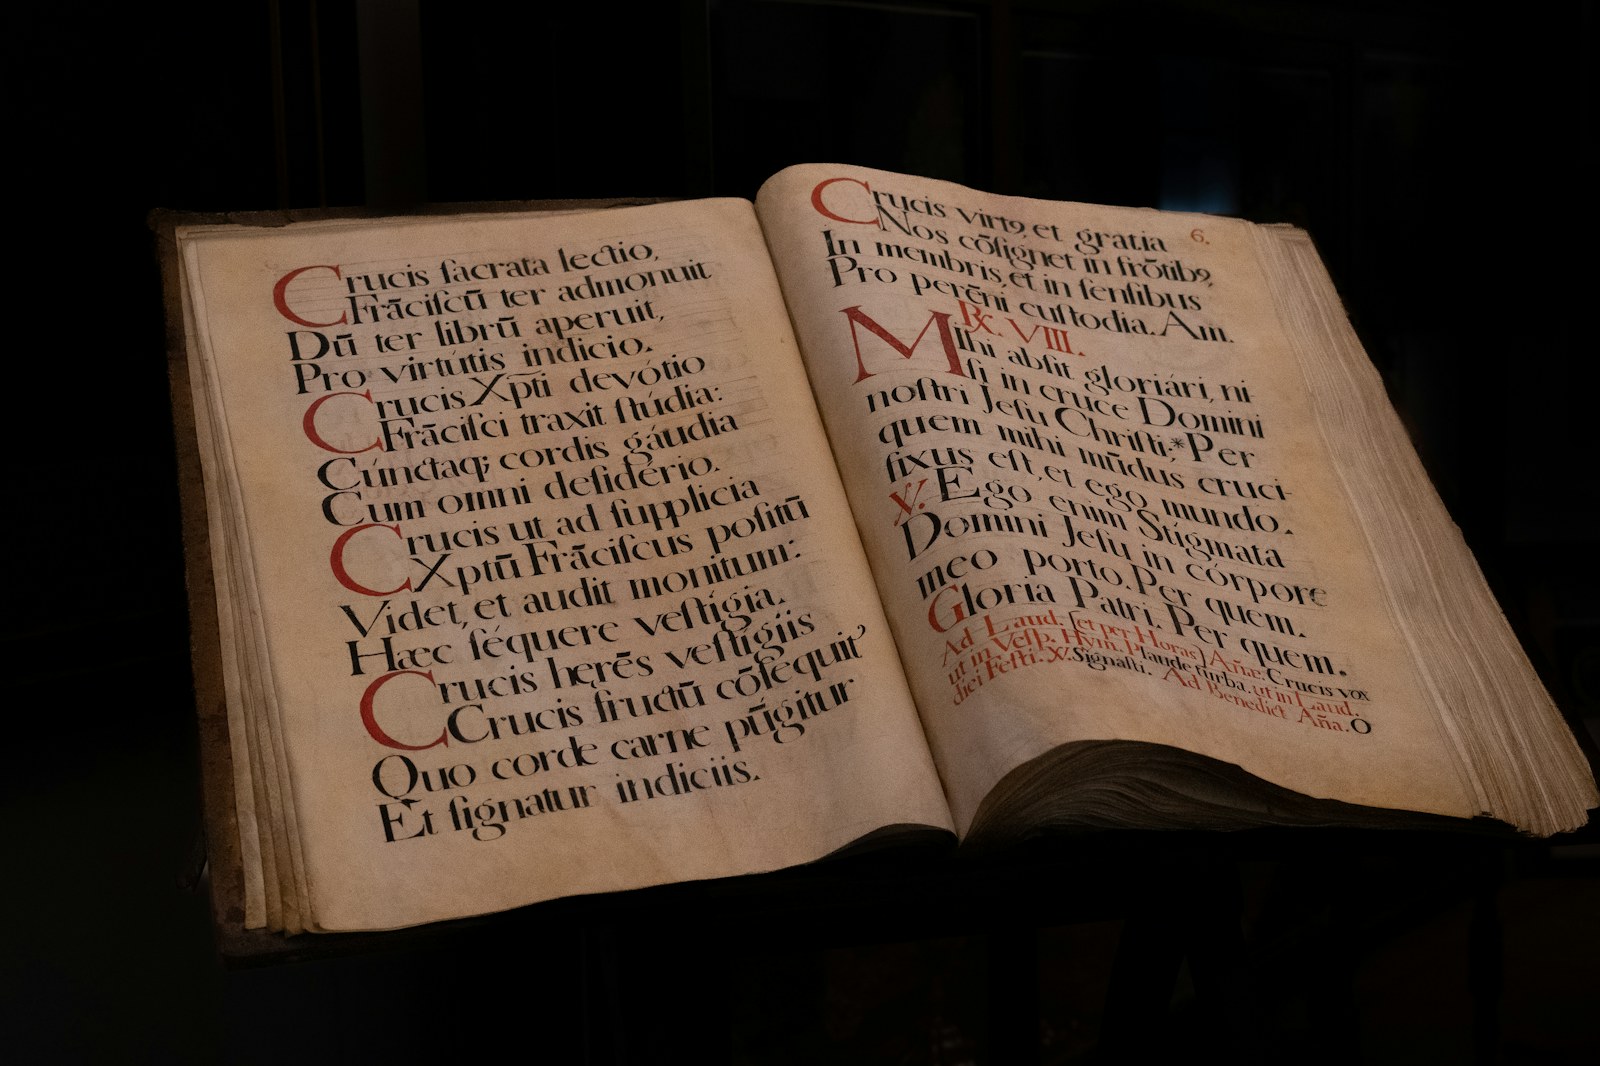 Crucis ſacrata lectio,
Frāciſcū ter admonuit
Dū ter librū aperuit,
Pro virtútis indicio.
Crucis Xp̄ti devótio
Frāciſci traxit ſtúdia:
Cúnctaq; cordis gáudia
Cum omni deſidério.
Crucis ut ad ſupplicia
Xptū Frāciſcus poſitū
Videt, et audit monitum:
Hæc ſéquere veſtígia.
Crucis hęrēs veſtigiis
Crucis fructū cōſequit'
Quo corde carne pūgitur
Et ſignatur indiciis.
Crucis virtꝰ, et gratia 6.
Nos cōſignet in frōtibꝰ,
In membris, et in ſenſibus
Pro perēni cuſtodia. Am.
℞. VIII.
Mihi abſit gloriári, ni-
ſi in cruce Domini
noſtri Jeſu Chriſti;*Per
quem mihi mūdus cruci-
fixus eſt, et ego mundo.
℣. Ego enim Stígmata
Domini Jeſu in córpore
meo porto. Per quem.
Gloria Patri. Per quem.
Ad Laud. (et per Horas) Añæ: Crucis vox
ut in Veſp. Hym. Plaude turba. ut in Laud.
dici Feſti. ℣. Signaſti. Ad Benedict Aña. O